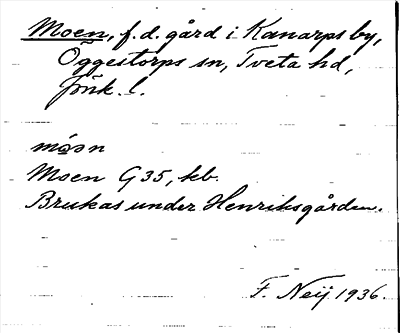 Moen, f.d. gård i Kanarps by,
Öggestorps sn, Tveta hd,
Jönk. l.
móən
Moen G 35, kb.
Brukas under Henriksgården.
F. Neij 1936.